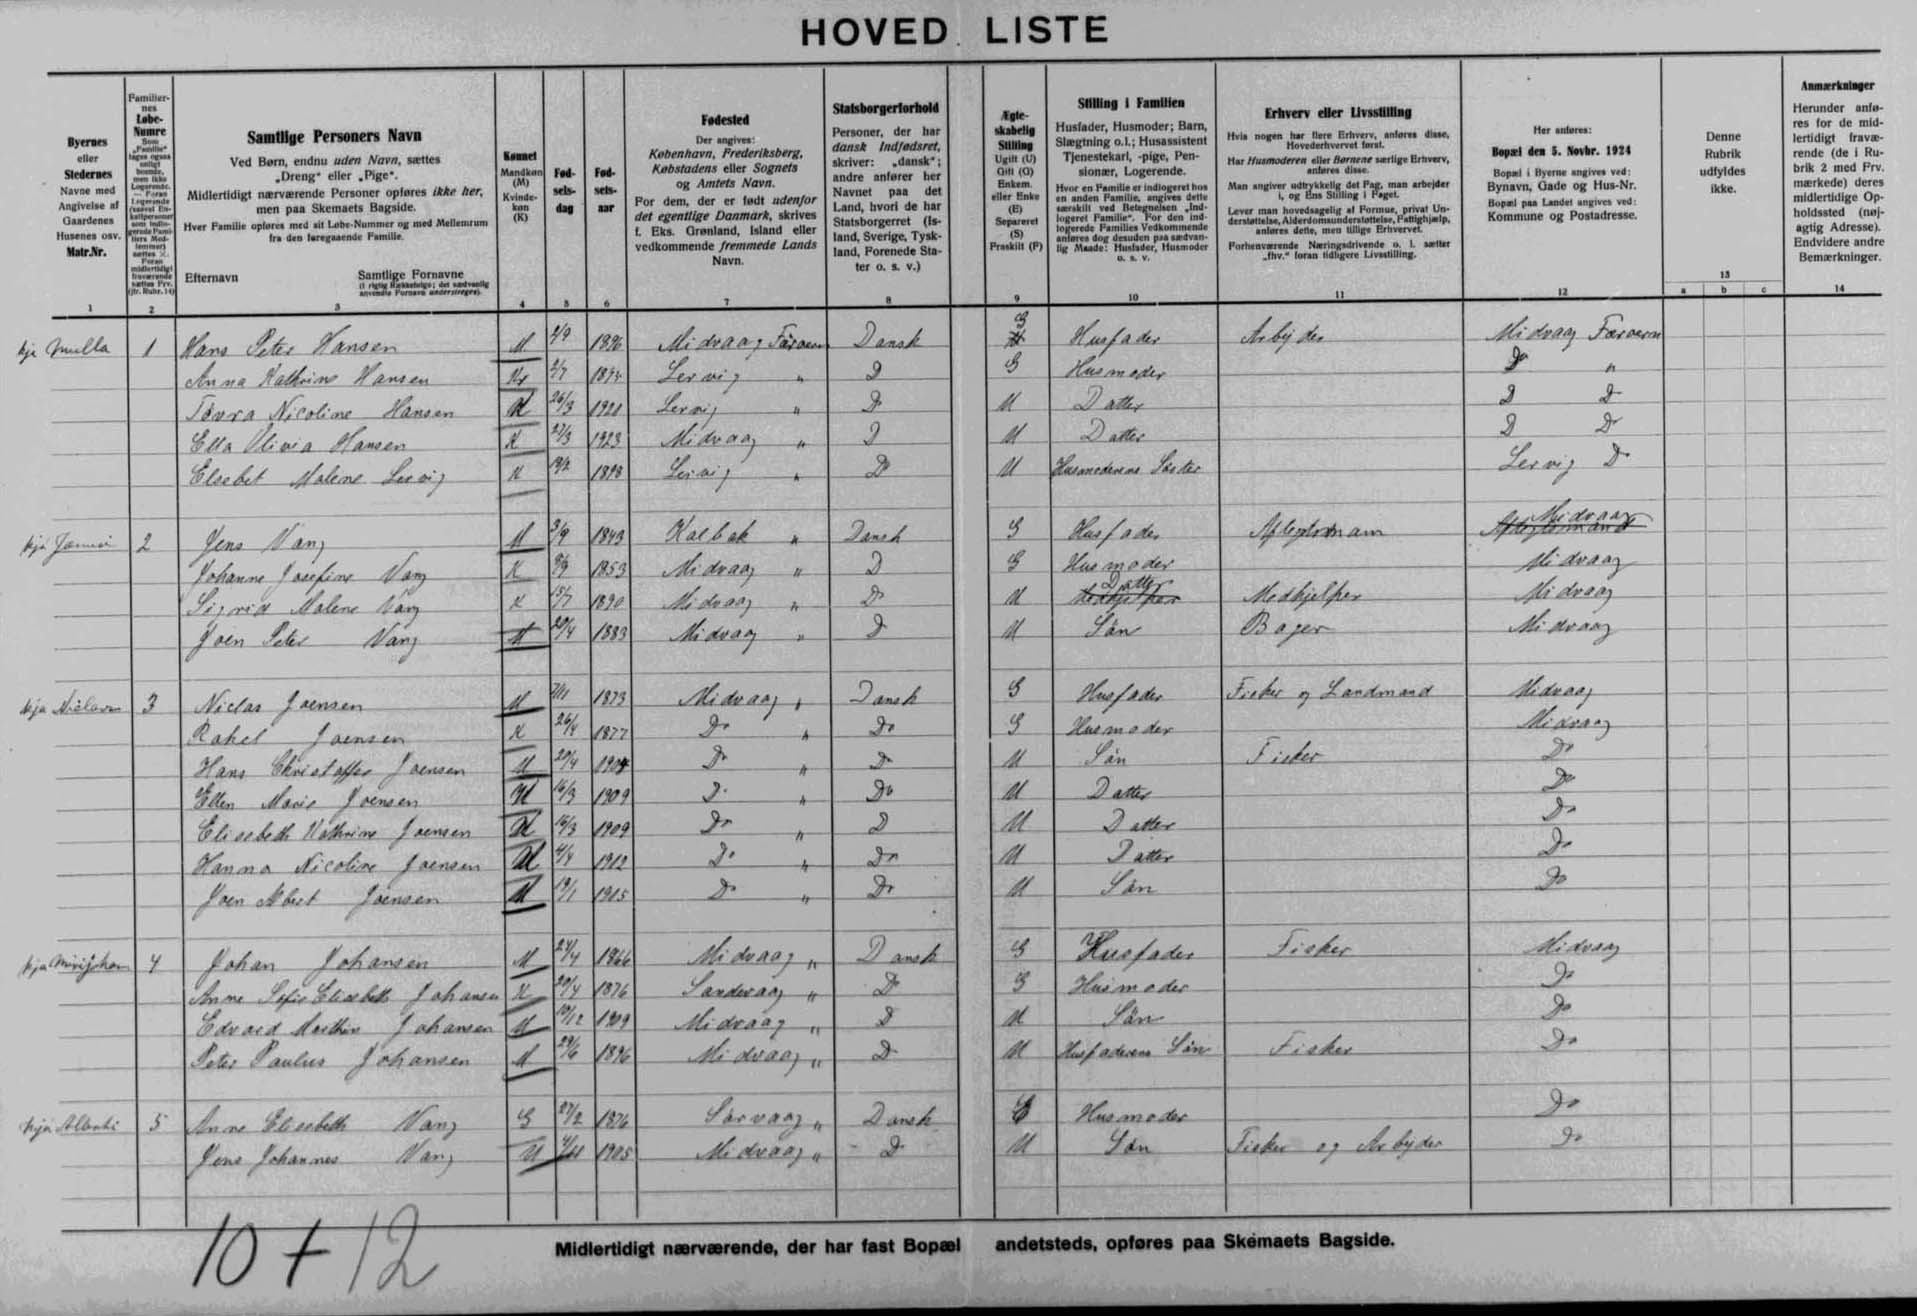 HOVED LISTE
Byernes
eller
Stedernes
Navne med
Angivelse af
Gaardenes
Husenes osv.
Matr.Nr.
1
Familier-
nes
Løbe-
Numre
2
Samtlige Personers Navn
Ved Børn, endnu uden Navn, sættes
„Dreng“ eller „Pige“.
Midlertidigt nærværende Personer opføres ikke her,
men paa Skemaets Bagside.
Hver Familie opføres med sit Løbe-Nummer og med Mellemrum
fra den foregaaende Familie.
Efternavn
Samtlige Fornavne
(i rigtig Rækkefølge; det sædvanlig
anvendte Fornavn understreges).
3
Kønnet
Mandkøn
(M)
Kvinde-
køn
(K)
4
Fød-
sels-
dag
5
Fød-
sels-
aar
6
Fødested
Der angives:
København, Frederiksberg,
Købstadens eller Sognets
og Amtets Navn.
For dem, der er født udenfor
det egentlige Danmark, skrives
f. Eks. Grønland, Island eller
vedkommende fremmede Lands
Navn.
7
Statsborgerforhold
Personer, der har
dansk Indfødsret,
skriver: „dansk“;
andre anfører her
Navnet paa det
Land, hvori de har
Statsborgerret (Is-
land, Sverige, Tysk-
land, Forenede Sta-
ter o. s. v.)
8
Ægte-
skabelig
Stilling
Ugift (U)
Gift (G)
Enkem.
eller Enke
(E)
Separeret
(S)
Fraskilt (F)
9
Stilling i Familien
Husfader, Husmoder; Barn,
Slægtning o.l.; Husassistent
Tjenestekarl, -pige, Pen-
sionær, Logerende.
Hvor en Familie er indlogeret hos
en anden Familie, angives dette
særskilt ved Betegnelsen „Ind-
logeret Familie“. For den ind-
logerede Families Vedkommende
anføres dog desuden paa sædvan-
lig Maade: Husfader, Husmoder
o. s. v.
10
Erhverv eller Livsstilling
Hvis nogen har flere Erhverv, anføres disse,
Hovederhvervet først.
Har Husmoderen eller Børnene særlige Erhverv,
anføres disse.
Man angiver udtrykkelig det Fag, man arbejder
i, og Ens Stilling i Faget.
Lever man hovedsagelig af Formue, privat Un-
derstøttelse, Alderdomsunderstøttelse, Fattighjælp,
anføres dette, men tillige Erhvervet.
Forhenværende Næringsdrivende o. l. sætter
„fhv.“ foran tidligere Livsstilling.
11
Her anføres:
Bopæl den 5. Novbr. 1924
Bopæl i Byerne angives ved:
Bynavn, Gade og Hus-Nr.
Bopæl paa Landet angives ved:
Kommune og Postadresse.
12
Denne
Rubrik
udfyldes
ikke.
13
a b c
Anmærkninger
Herunder anfø-
res for de mid-
lertidigt fravæ-
rende (de i Ru-
brik 2 med Frv.
mærkede) deres
midlertidige Op-
holdssted (nøj-
agtig Adresse).
Endvidere andre
Bemærkninger.
14
hja Mulla 1 Hans Peter Hansen M 1896 Midvaag Færoern Dansk G Husfader Arbejder Midvaag Færoern
Anna Kathrine Hansen Lervig „ D G Husmoder Do „
Tovra Nicoline Hansen 26/3 1921 Lervig „ Do U Datter D Do
Ella Olivia Hansen K 27/3 1923 Midvaag „ D U Datter D Do
Elsebet Malene Lervig K 1898 Lervig „ Do U Husmoderens Søster Lervig Do
2 Jens Vang M 3/9 1843 Kalbak „ Dansk G Husfader Midvaag
Johanne Josefine Vang K 1853 Midvaag „ D G Husmoder Midvaag
Sigrid Malene Vang K 15/7 1890 Midvaag „ Do U Datter Medhjelper Midvaag
Joen Peter Vang M 20/4 1883 Midvaag „ Do U Sön Bager Midvaag
3 Niclas Joensen M 1873 Midvaag „ Dansk G Husfader Fisker og Landmand Midvaag
Rakel Joensen K 26/4 1877 Do „ Do G Husmoder Midvaag
Hans Christoffer Joensen M 20/4 Do „ Do U Sön Fisker Do
Ellen Marie Joensen 16/3 1909 Do „ Do U Datter Do
Elisebeth Kathrine Joensen 16/3 1909 Do „ D U Datter Do
Hanna Nicoline Joensen 4/4 1912 Do „ Do U Datter Do
Joen Albert Joensen M 19/1 1915 Do „ Do U Sön Do
4 Johan Johansen M 24/4 1866 Midvaag „ Dansk G Husfader Fisker Midvaag
Anne Sofie Elisebeth Johansen K 20/4 1876 Sandevaag „ Do G Husmoder Do
Edvard Marthin Johansen M 10/12 1909 Midvaag „ D U Sön Do
Peter Paulus Johansen M 29/6 1896 Midvaag „ D U Husfaderens Sön Fisker Do
hja 5 Anne Elisebeth Vang 27/2 1876 Sörvaag „ Dansk E Husmoder Do
Jens Johannes Vang M 1905 Midvaag „ D U Sön Fisker og Arbejder Do
10 + 12
Midlertidigt nærværende, der har fast Bopæl andetsteds, opføres paa Skemaets Bagside.